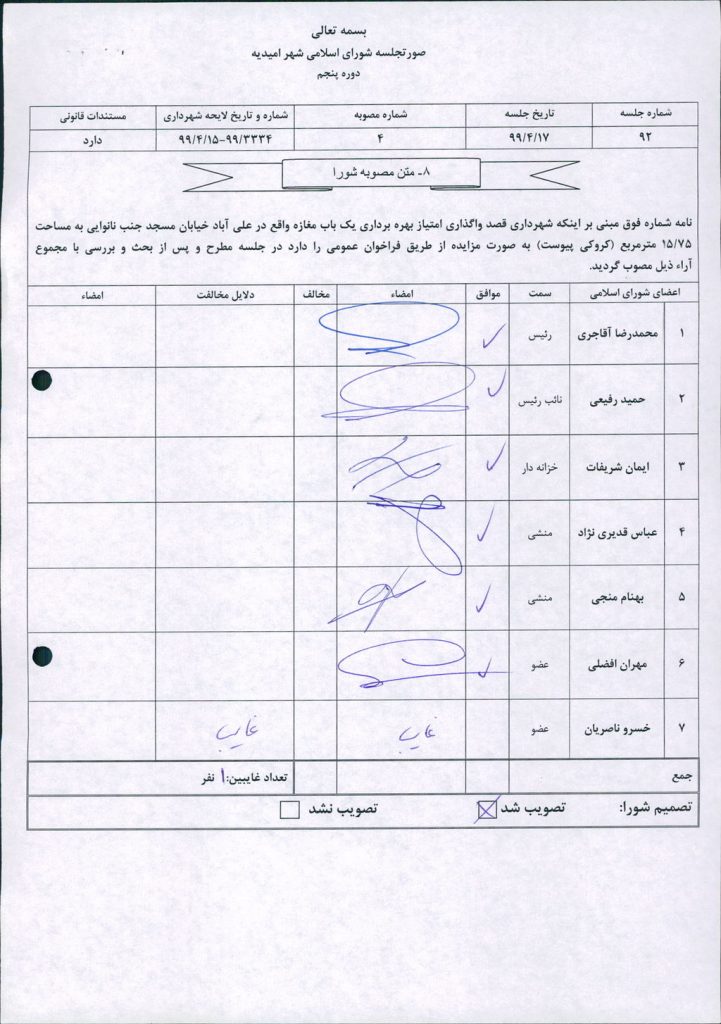 بسمه تعالی
صورتجلسه شورای اسلامی شهر امیدیه
دوره پنجم
شماره جلسه تاریخ جلسه شماره مصوبه شماره و تاریخ لایحه شهرداری مستندات قانونی
۹۲ ۹۹/۴/۱۷ ۴ ۹۹/۴/۱۵-۹۹/۳۳۳۴ دارد
۸- متن مصوبه شورا
نامه شماره فوق مبنی بر اینکه شهرداری قصد واگذاری امتیاز بهره برداری یک باب مغازه واقع در علی آباد خیابان مسجد جنب نانوایی به مساحت
۱۵/۷۵ مترمربع (کروکی پیوست) به صورت مزایده از طریق فراخوان عمومی را دارد در جلسه مطرح و پس از بحث و بررسی با مجموع
آراء ذیل مصوب گردید.
اعضای شورای اسلامی سمت موافق امضاء مخالف دلایل مخالفت امضاء
۱ محمدرضا آقاجری رئیس
۲ حمید رفیعی نائب رئیس
۳ ایمان شریفات خزانه دار
۴ عباس قدیری نژاد منشی
۵ بهنام منجی منشی
۶ مهران افضلی عضو
۷ خسرو ناصریان عضو غایب غایب
جمع تعداد غایبین: ۱ نفر
تصمیم شورا: تصویب شد تصویب نشد